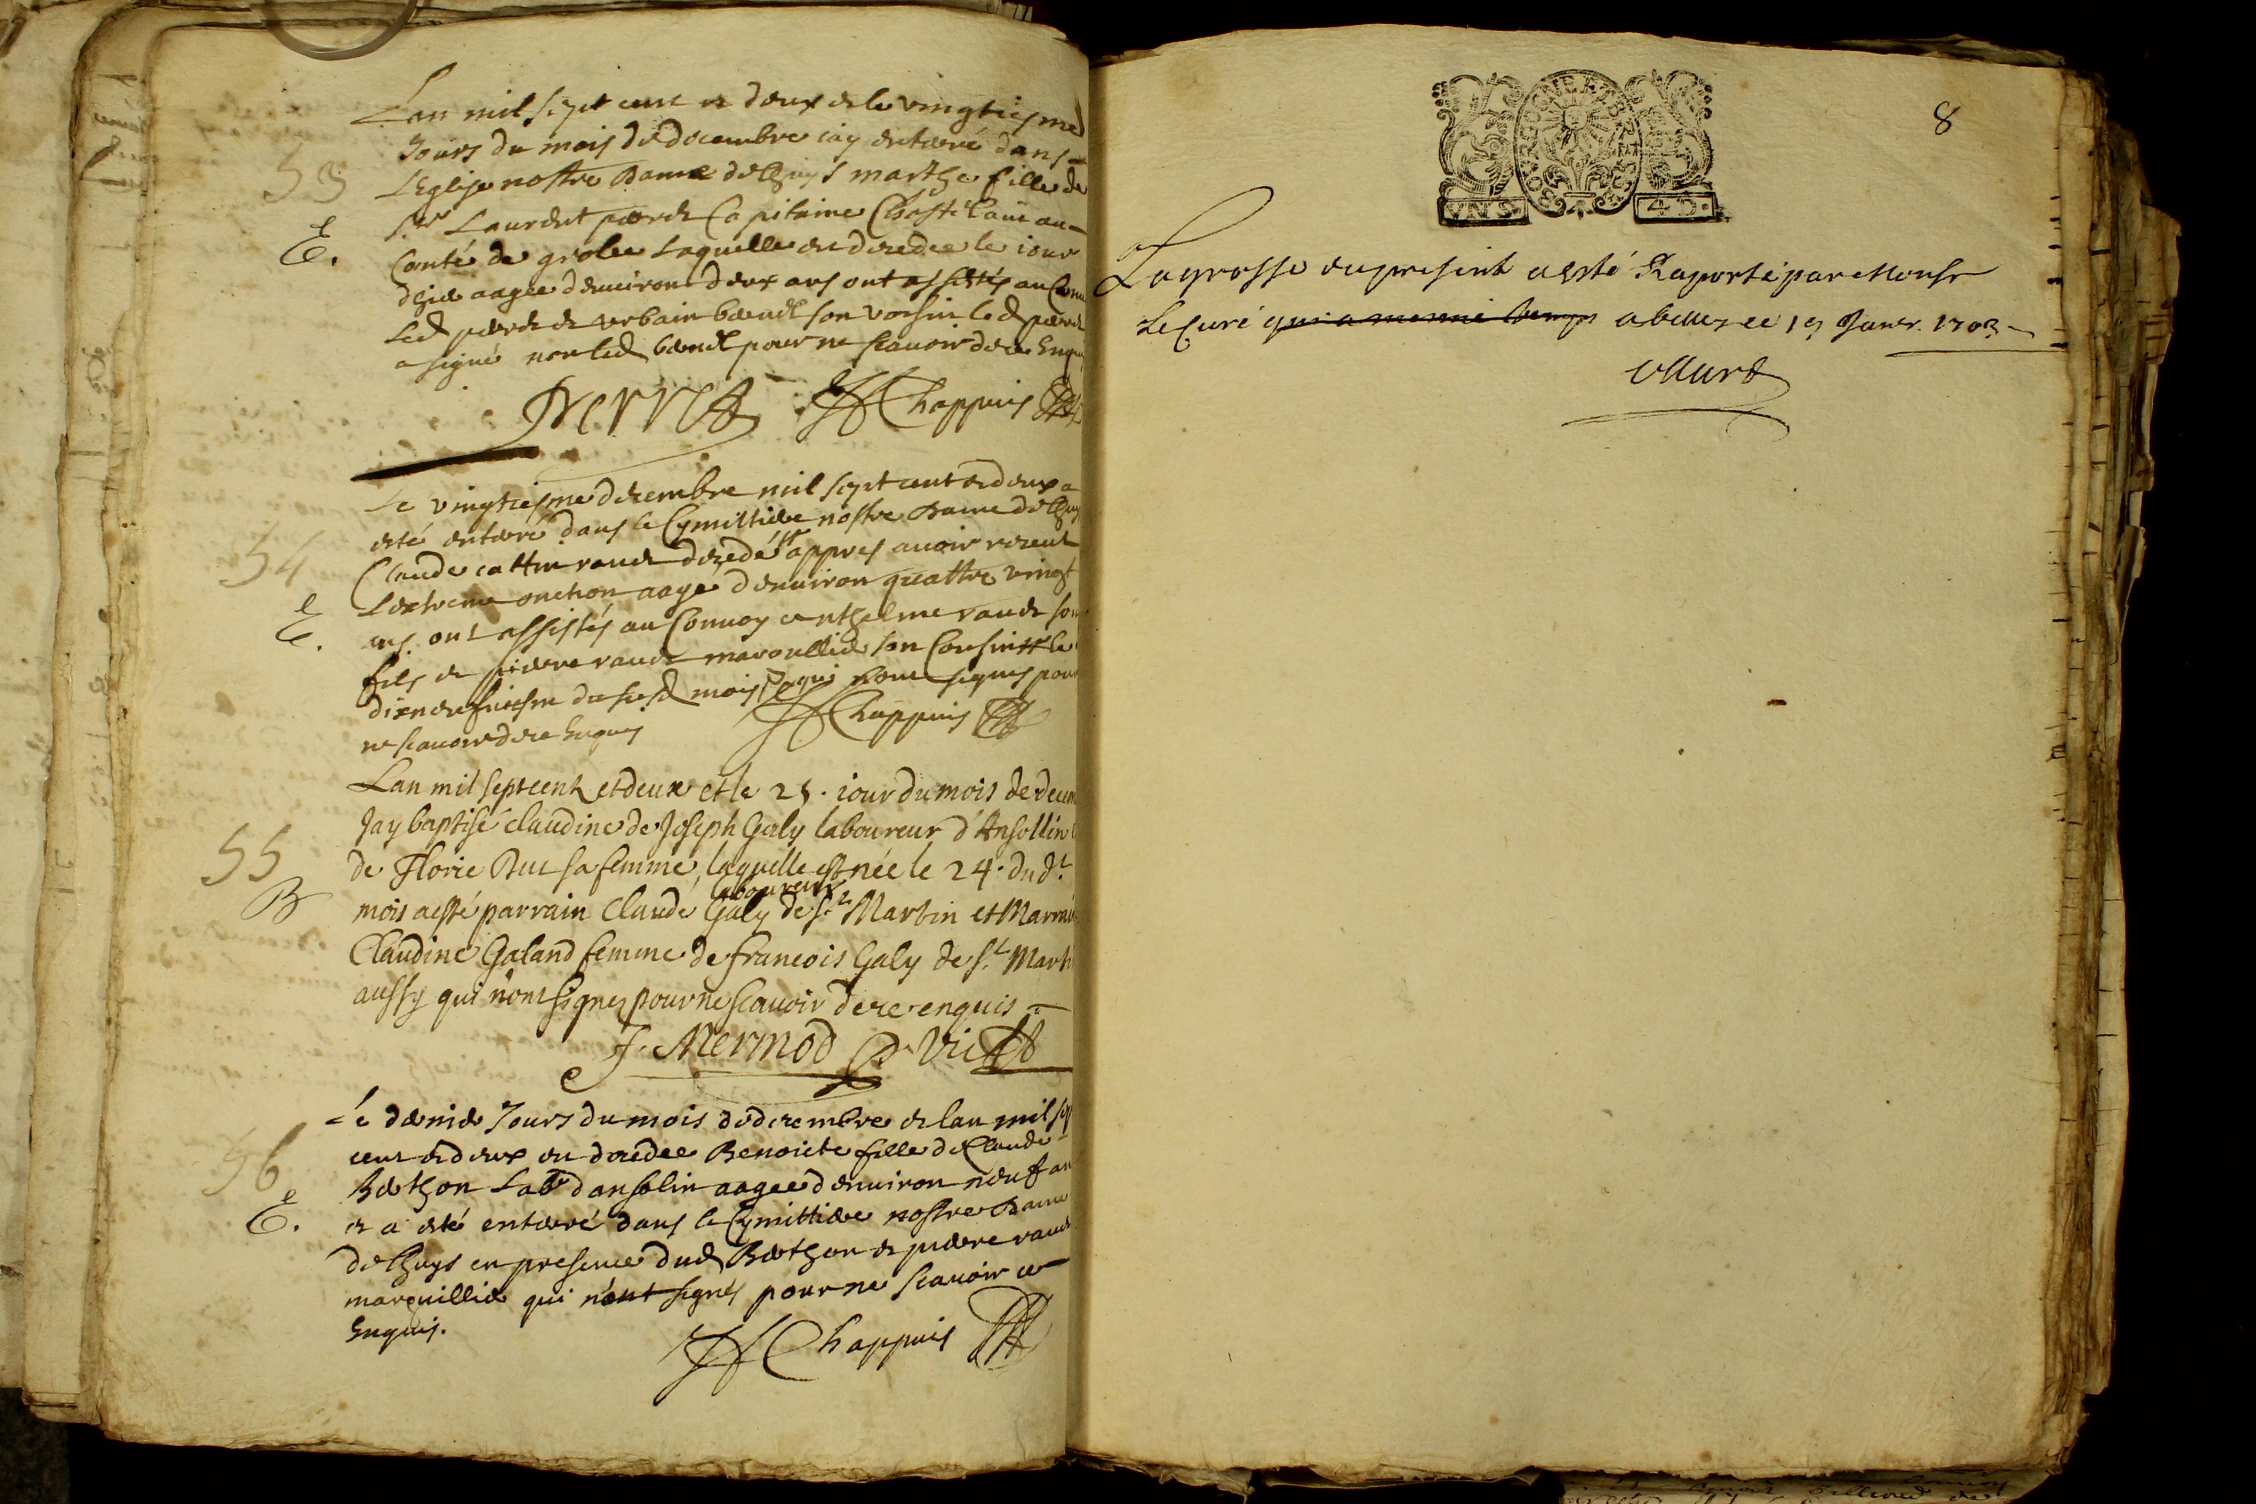 Lan mil sept cent et deux et le vingtiesme
Jours du mois de decembre iay enterré dans
53
L'Eglise nostre Dame de Lhuys marthe fille de
Sr Laurent perret Capitaine Chastelain au
E.
Conté de grolee Laquelle est decedee le iour
d'hier aagée d'environ deux ans ont assistés au
Led perret et urbain son voisin led perret
a signé non led pour ne scavoir de ce Enquis
Perret Chappuis
Le vingtiesme decembre mil sept cent et deux a
esté enterré dans le Cymittiere nostre Dame de Lhuys
54
Claude decedé appres avoir receut
Lextreme onction aagé d'environ quattre vingt
E.
ans. ont assistés au Convoy anthelme son
fils et pierre marguillie son Cousin le
dixneufviesme du susd mois qui nont signés pour
ne scavoir de ce Enquis Chappuis
Lan mil sept cent et deux et le 25. iour du mois de decem
Jay baptisé claudine de Joseph Galy laboureur d'Ansollin
55
de Florie Buc sa femme, laquelle est née le 24. dud.t
laboureur
B
mois a esté parrain Claude Galy de St Martin et Marrai
Claudine Galand femme de francois Galy de St Marti
aussy qui n'ont signez pour ne scavoir de ce enquis
J. Mermod Vict
Le dernie Jours du mois de decembre et lan mil sep
cent et deux est decedee Benoicte fille de Claude
56
Berthon Labr d'ansolin aagee d'environ neuf an
E.
et a esté enterré dans le Cymittiere nostre Dame
de Lhuys en presence dud Berthon et pierre
marguillie qui n'ont signés pour ne scavoir ce
Enquis.
Chappuis
8
BOURGOGNE
VN S. 4 D.
La grosse du present a esté Raporté par Monsr
Le Curé qui a mesme temps a belley ce 19 Janvr. 1703